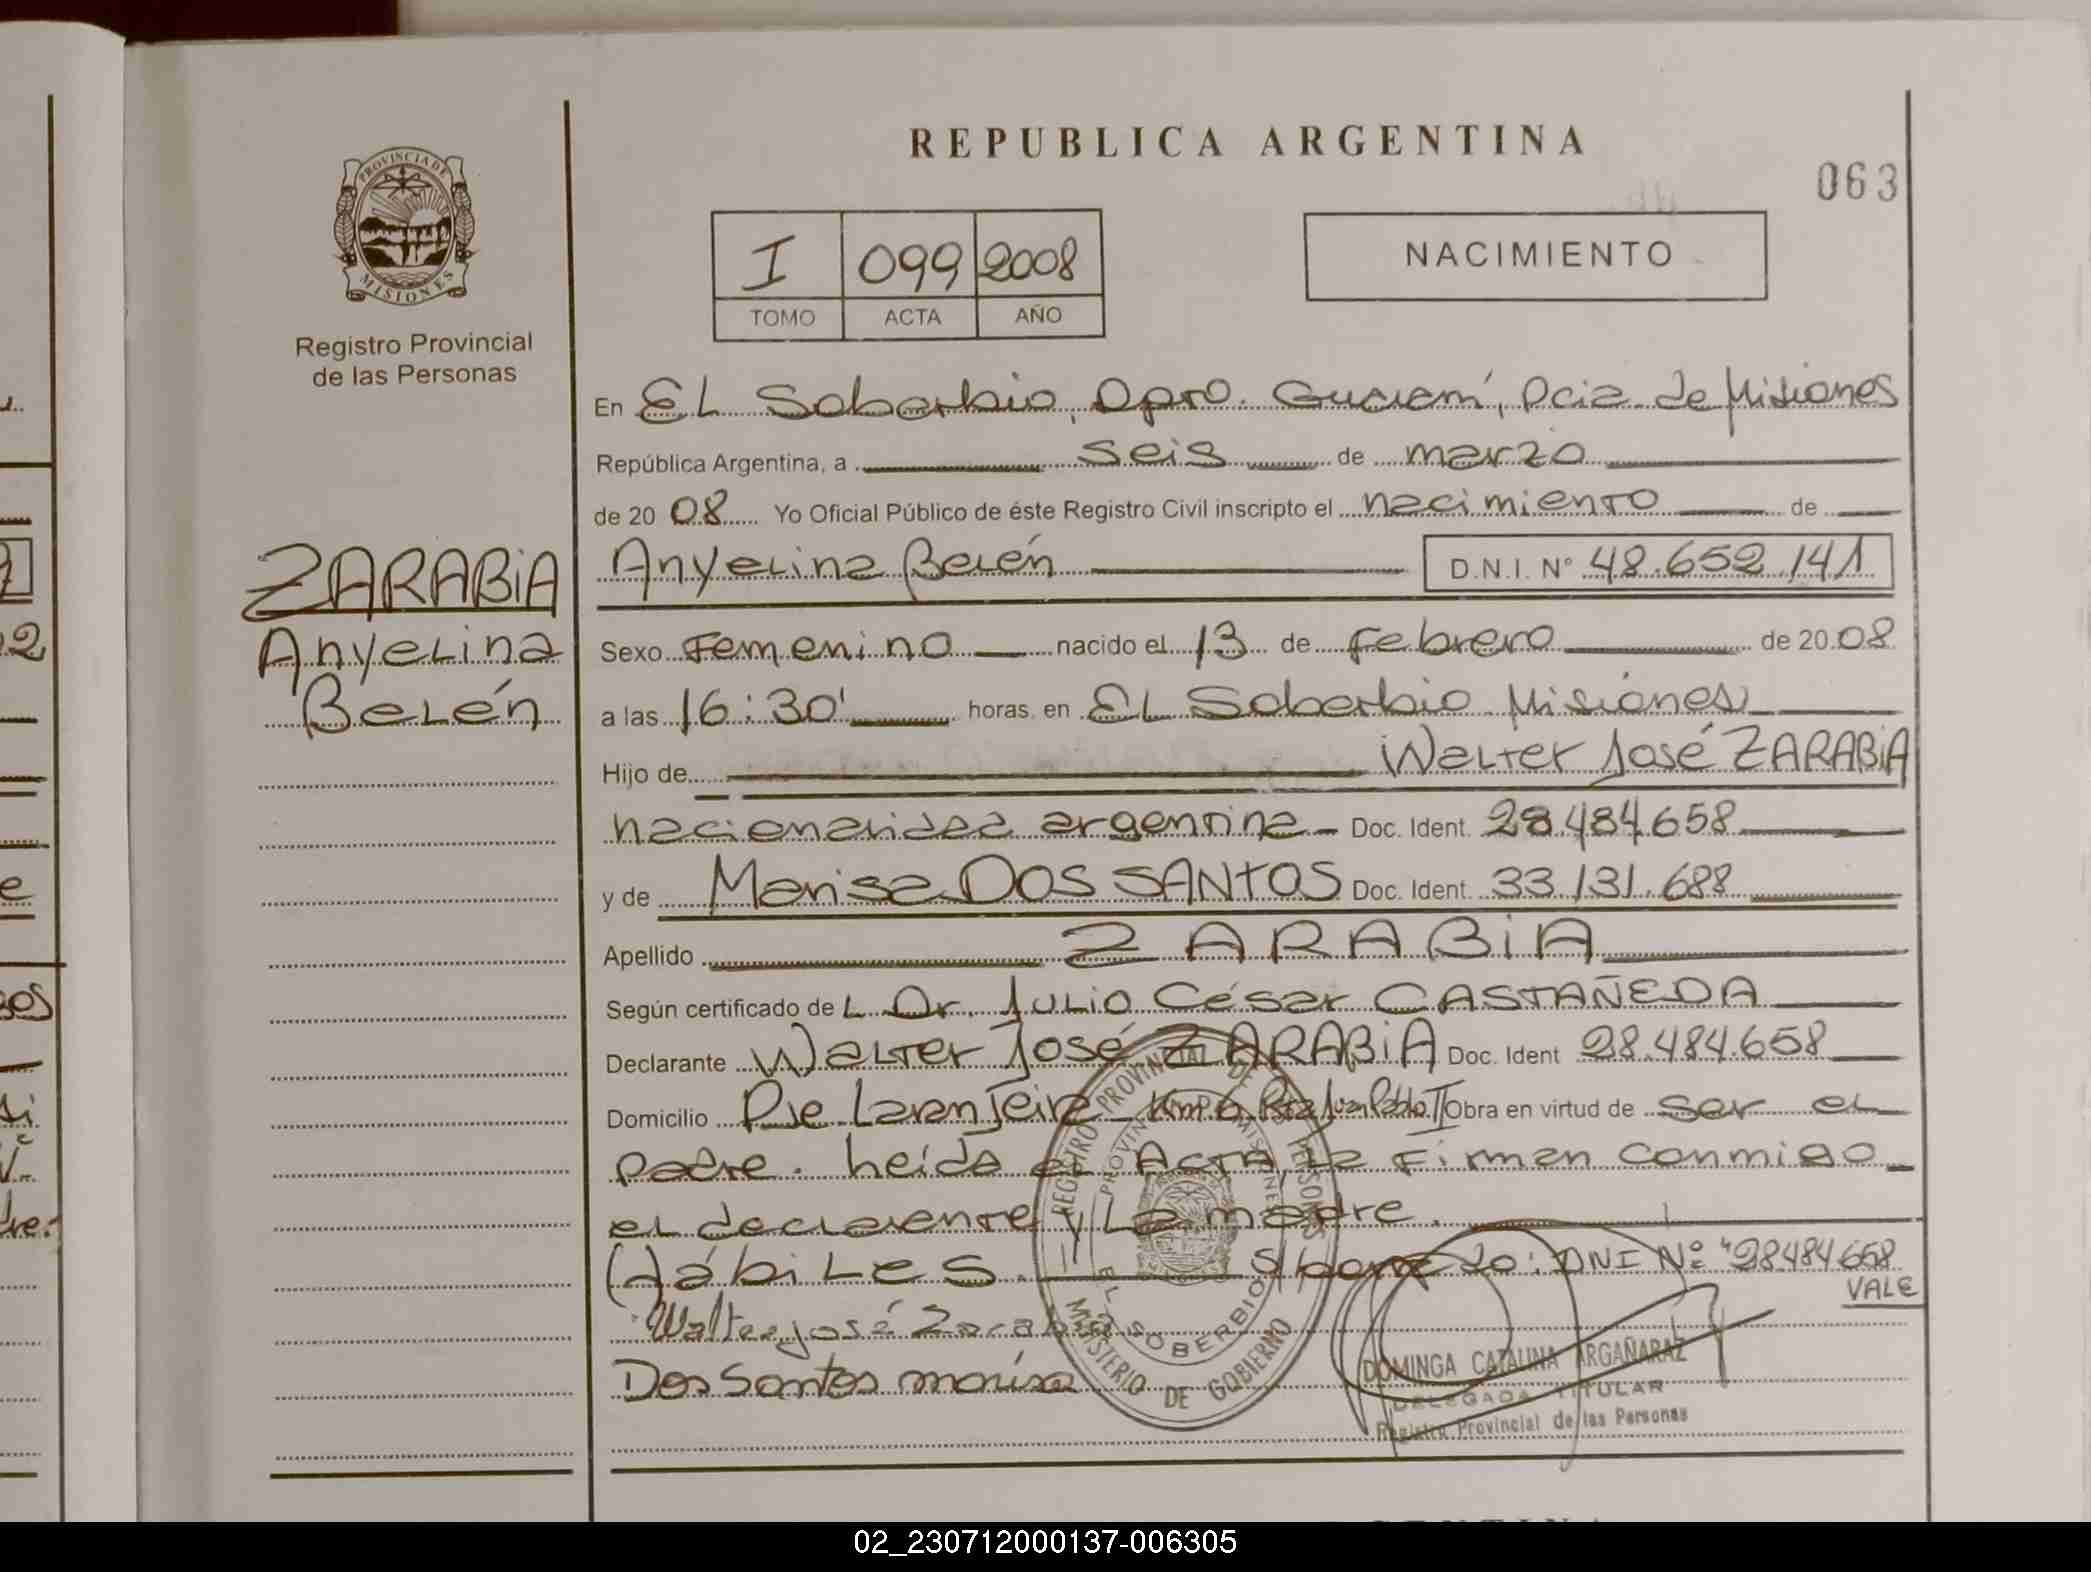 REPUBLICA ARGENTINA
063
PROVINCIA DE
MISIONES
Registro Provincial
de las Personas
I 099 2008
TOMO ACTA AÑO
NACIMIENTO
En El Soberbio, Dpto. Guaraní, Pcia. de Misiones
República Argentina, a seis de marzo
de 20 08 Yo Oficial Público de éste Registro Civil inscripto el nacimiento de
ZARABIA
Anyelina
Belén
Anyelina Belén D.N.I. N° 48.652.141
Sexo Femenino nacido el 13 de Febrero de 2008
a las 16:30' horas. en El Soberbio Misiones
Hijo de Walter José ZARABIA
nacionalidad argentina Doc. Ident. 28.484.658
y de Marisa DOS SANTOS Doc. Ident. 33.131.688
Apellido ZARABIA
Según certificado del Dr. Julio César CASTAÑEDA
Declarante Walter José ZARABIA Doc. Ident 28.484.658
Domicilio Pje Laranjeira Km 6 Rta Juan Pablo II Obra en virtud de ser el
padre. Leída el Acta, la Firman conmigo
el declarante y la madre.
(H)ábiles. S/borrado: DNI Nº "28.484.658
VALE
Walter José Zarabia
Dos Santos marisa
REGISTRO PROVINCIAL DE LAS PERSONAS
PROVINCIA DE MISIONES
EL SOBERBIO
MINISTERIO DE GOBIERNO
DOMINGA CATALINA ARGAÑARAZ
DELEGADA TITULAR
Registro Provincial de las Personas
02_230712000137-006305